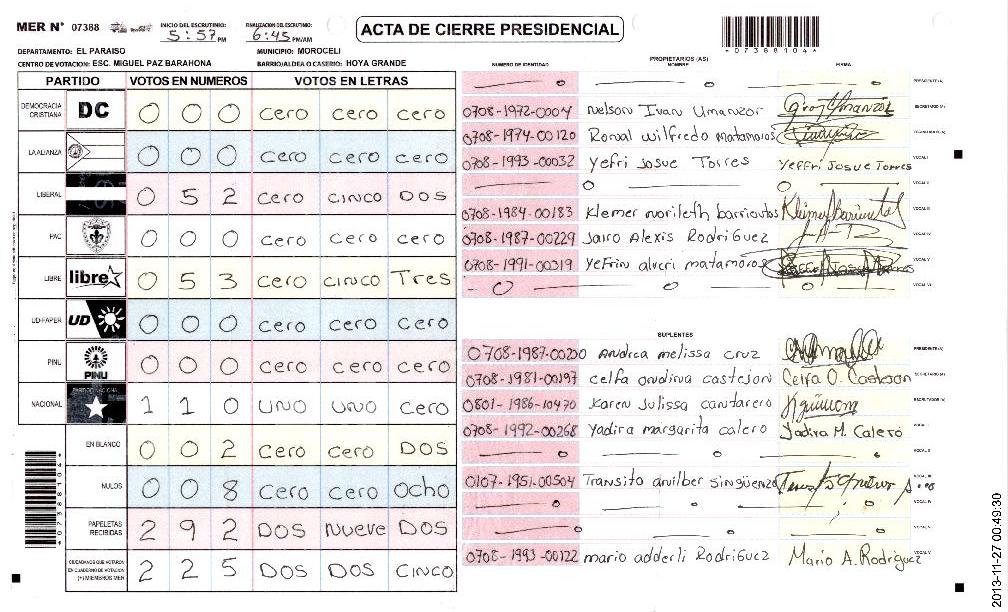 MER N° 07388
INICIO DEL ESCRUTINIO: 5:57 PM
FINALIZACION DEL ESCRUTINIO: 6:45 PM/AM
ACTA DE CIERRE PRESIDENCIAL
*07388104*
DEPARTAMENTO: EL PARAISO
MUNICIPIO: MOROCELI
CENTRO DE VOTACION: ESC. MIGUEL PAZ BARAHONA
BARRIO/ALDEA O CASERIO: HOYA GRANDE
PARTIDO VOTOS EN NUMEROS VOTOS EN LETRAS
DEMOCRACIA CRISTIANA DC 0 0 0 cero cero cero
LA ALIANZA 0 0 0 cero cero cero
LIBERAL 0 5 2 cero cinco DOS
PAC 0 0 0 cero cero cero
LIBRE libre 0 5 3 cero cinco Tres
UD-FAPER UD 0 0 0 cero cero cero
PINU PINU 0 0 0 cero cero cero
NACIONAL 1 1 0 UNO UNO cero
EN BLANCO 0 0 2 cero cero DOS
NULOS 0 0 8 cero cero ocho
PAPELETAS RECIBIDAS 2 9 2 DOS nueve DOS
CIUDADANOS QUE VOTARON EN CUADERNO DE VOTACION (+) MIEMBROS MER 2 2 5 DOS DOS cinco
PROPIETARIOS (AS)
NUMERO DE IDENTIDAD NOMBRE FIRMA
PRESIDENTE (A)
0708-1972-0004 nelson Ivan Umanzor SECRETARIO (A)
0708-1974-00120 Ronal wilfredo matamoros
0708-1993-00032 yefri Josue Torres Yeffri Josue Torres VOCAL I
VOCAL II
0708-1984-00183 Klemer norileth barrientos VOCAL III
0708-1987-00229 Jairo Alexis Rodriguez VOCAL IV
0708-1991-00319 yefrin alveri matamoros VOCAL V
VOCAL VI
SUPLENTES
0708-1987-00200 Andrea melissa cruz PRESIDENTE (A)
0708-1981-00197 celfa ondina castejon Celfa O. Castejon SECRETARIO (A)
0801-1986-10470 Karen Julissa cantarero
0708-1992-00268 Yadira margarita calero Yadira M. Calero VOCAL I
VOCAL II
0107-1951-00504 Transito anilber singuenza VOCAL III
VOCAL IV
0708-1993-00122 mario adderli Rodriguez Mario A. Rodriguez
*07388104*
2013-11-27 00:49:30